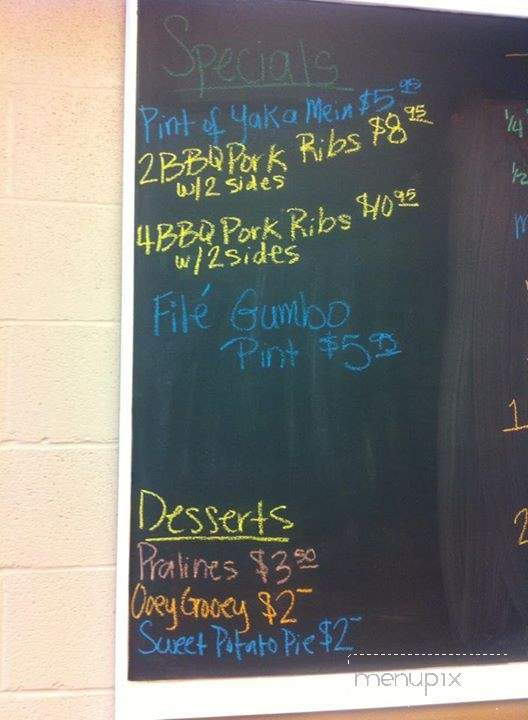 Specials
Pint of Yaka Mein $5.95
2 BBQ Pork Ribs $8.95
w/2 sides
4 BBQ Pork Ribs $10.95
w/2 sides
Filé Gumbo
Pint $5.95
Desserts
Pralines $3.50
Ooey Gooey $2-
Sweet Potato Pie $2-
1/4
1/2
1
2
menupix